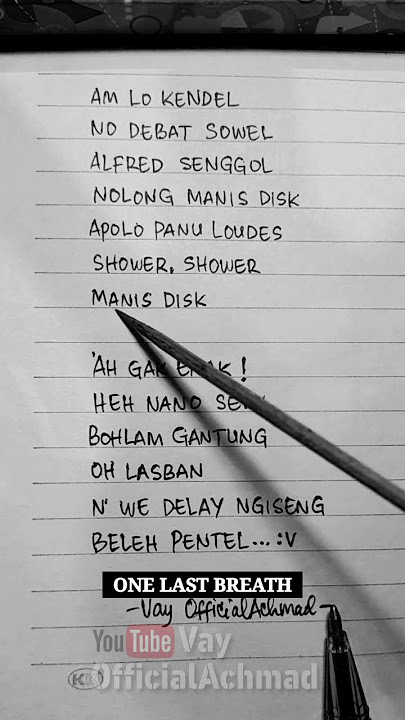 AM LO KENDEL
NO DEBAT SOWEL
ALFRED SENGGOL
NOLONG MANIS DISK
APOLO PANU LOUDES
SHOWER, SHOWER
MANIS DISK
'AH GAK !
HEH NANO
BOHLAM GANTUNG
OH LASBAN
N' WE DELAY NGISENG
BELEH PENTEL... :V
ONE LAST BREATH
-Vay OfficialAchmad-
YouTube Vay
OfficialAchmad